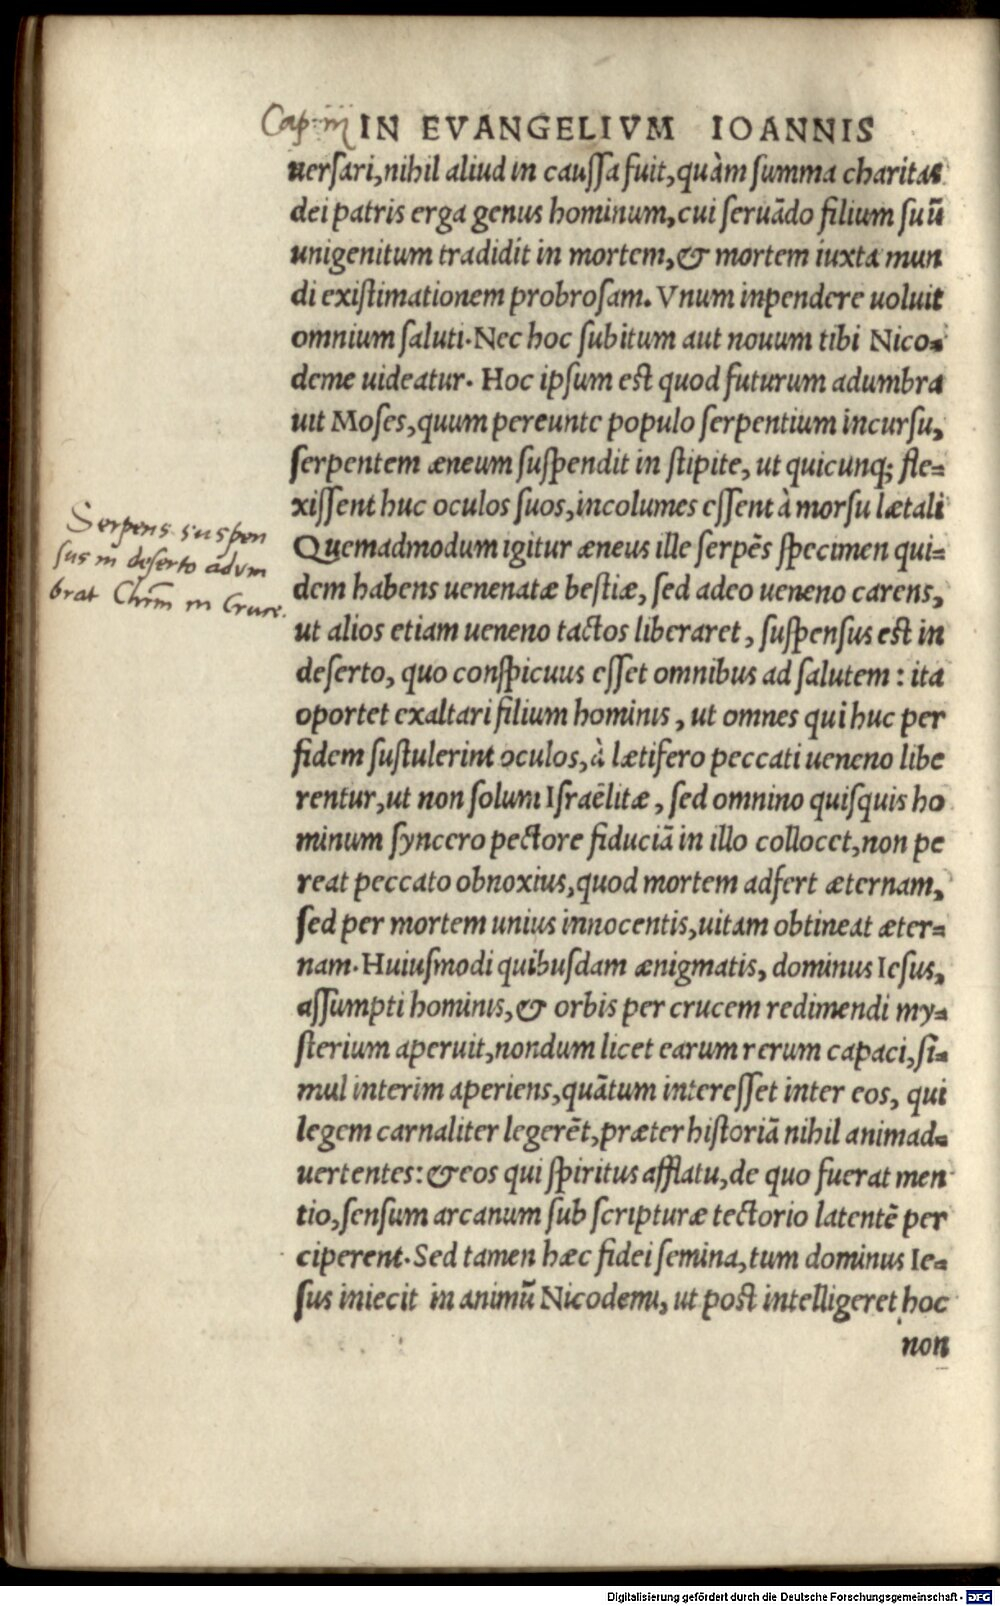 Cap. iij IN EVANGELIVM IOANNIS
uersari, nihil aliud in caussa fuit, quàm summa charitas
dei patris erga genus hominum, cui seruãdo filium suũ
unigenitum tradidit in mortem, & mortem iuxta mun
di existimationem probrosam. Vnum inpendere uoluit
omnium saluti. Nec hoc subitum aut nouum tibi Nico-
deme uideatur. Hoc ipsum est quod futurum adumbra
uit Moses, quum pereunte populo serpentium incursu,
serpentem æneum suspendit in stipite, ut quicunq; fle-
xissent huc oculos suos, incolumes essent à morsu lætali
Quemadmodum igitur æneus ille serpẽs specimen qui-
dem habens uenenatæ bestiæ, sed adeo ueneno carens,
ut alios etiam ueneno tactos liberaret, suspensus est in
deserto, quo conspicuus esset omnibus ad salutem: ita
oportet exaltari filium hominis, ut omnes qui huc per
fidem sustulerint oculos, à lætifero peccati ueneno libe
rentur, ut non solum Israëlitæ, sed omnino quisquis ho
minum syncero pectore fiduciã in illo collocet, non pe
reat peccato obnoxius, quod mortem adfert æternam,
sed per mortem unius innocentis, uitam obtineat æter-
nam. Huiusmodi quibusdam ænigmatis, dominus Iesus,
assumpti hominis, & orbis per crucem redimendi my-
sterium aperuit, nondum licet earum rerum capaci, si-
mul interim aperiens, quãtum interesset inter eos, qui
legem carnaliter legerẽt, præter historiã nihil animad-
uertentes: & eos qui spiritus afflatu, de quo fuerat men
tio, sensum arcanum sub scripturæ tectorio latentẽ per
ciperent. Sed tamen hæc fidei semina, tum dominus Ie-
sus iniecit in animũ Nicodemi, ut post intelligeret hoc
non
Serpens suspen
sus in deserto adum
brat Chrm̃ in Cruce.
Digitalisierung gefördert durch die Deutsche Forschungsgemeinschaft - DFG